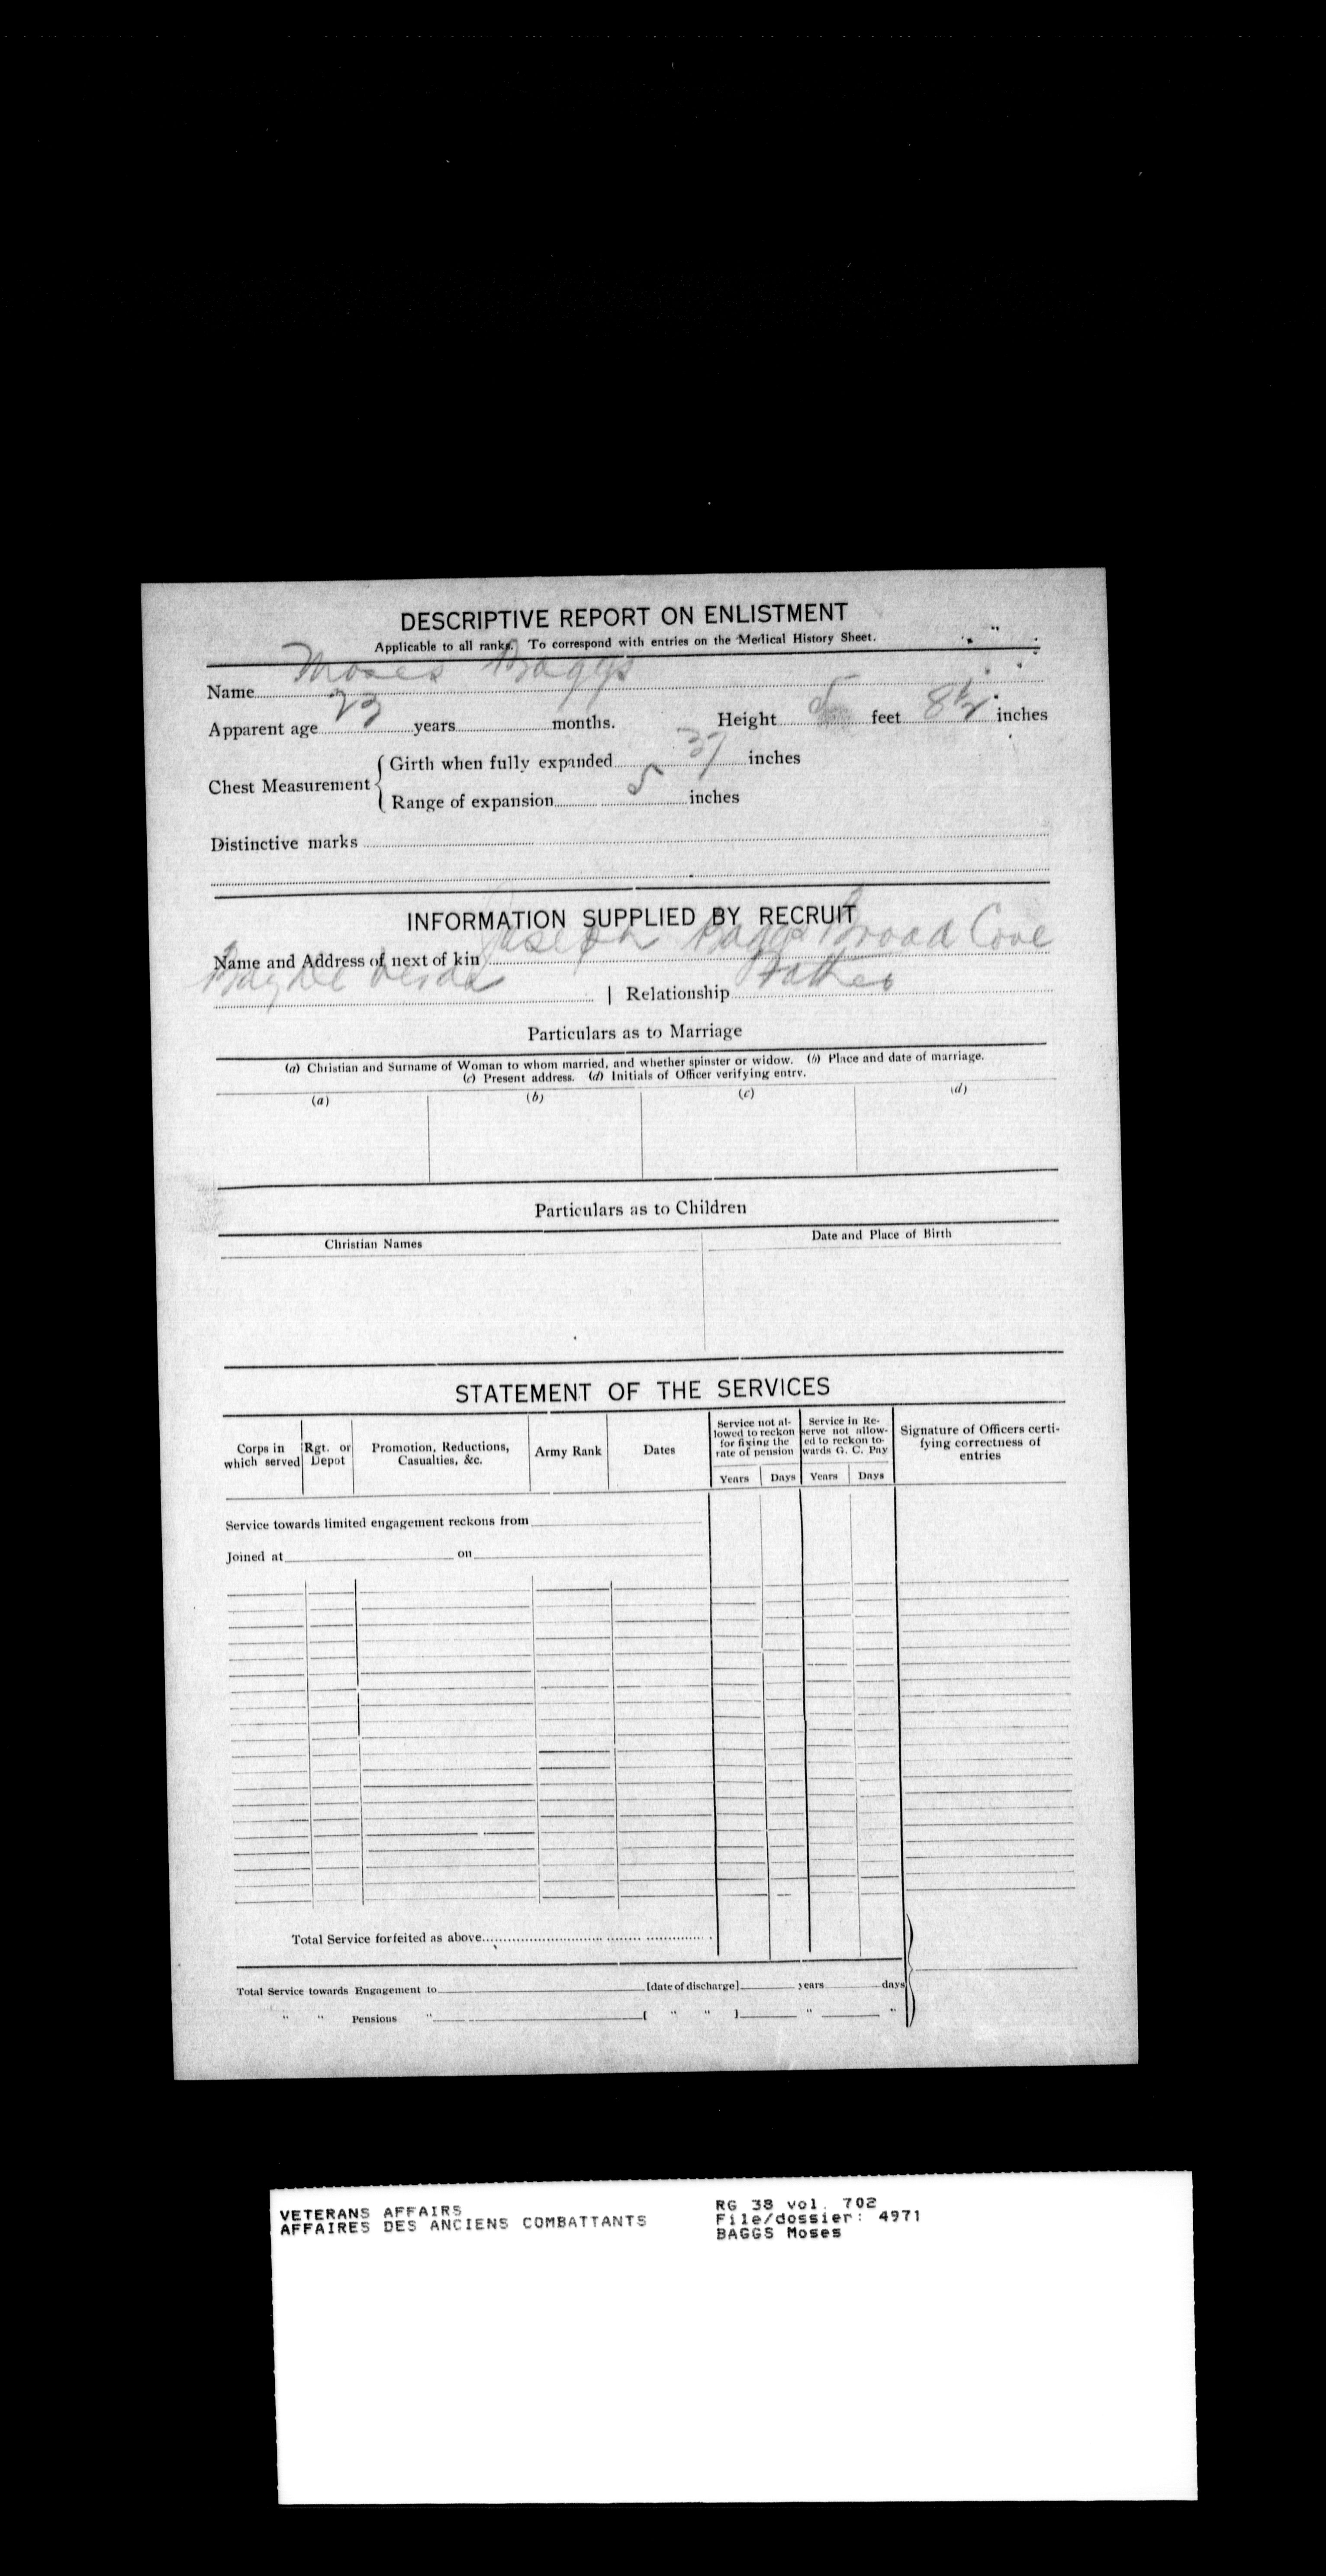 DESCRIPTIVE REPORT ON ENLISTMENT
Applicable to all ranks. To correspond with entries on the Medical History Sheet.
Name Moses Baggs
Apparent age 23 years months. Height 5 feet 8½ inches
Chest Measurement { Girth when fully expanded 37 inches
Range of expansion 5 inches
Distinctive marks
INFORMATION SUPPLIED BY RECRUIT
Name and Address of next of kin Joseph Baggs Broad Cove
Bay de Verde | Relationship Father
Particulars as to Marriage
(a) Christian and Surname of Woman to whom married, and whether spinster or widow. (b) Place and date of marriage.
(c) Present address. (d) Initials of Officer verifying entry.
(a) (b) (c) (d)
Particulars as to Children
Christian Names Date and Place of Birth
STATEMENT OF THE SERVICES
Corps in which served Rgt. or Depot Promotion, Reductions, Casualties, &c. Army Rank Dates Service not allowed to reckon for fixing the rate of pension Service in Reserve not allowed to reckon towards G. C. Pay Signature of Officers certifying correctness of entries
Years Days Years Days
Service towards limited engagement reckons from
Joined at on
Total Service forfeited as above
Total Service towards Engagement to [date of discharge] years days
" " Pensions " [ " " ] " "
VETERANS AFFAIRS
AFFAIRES DES ANCIENS COMBATTANTS
RG 38 vol. 702
File/dossier: 4971
BAGGS Moses